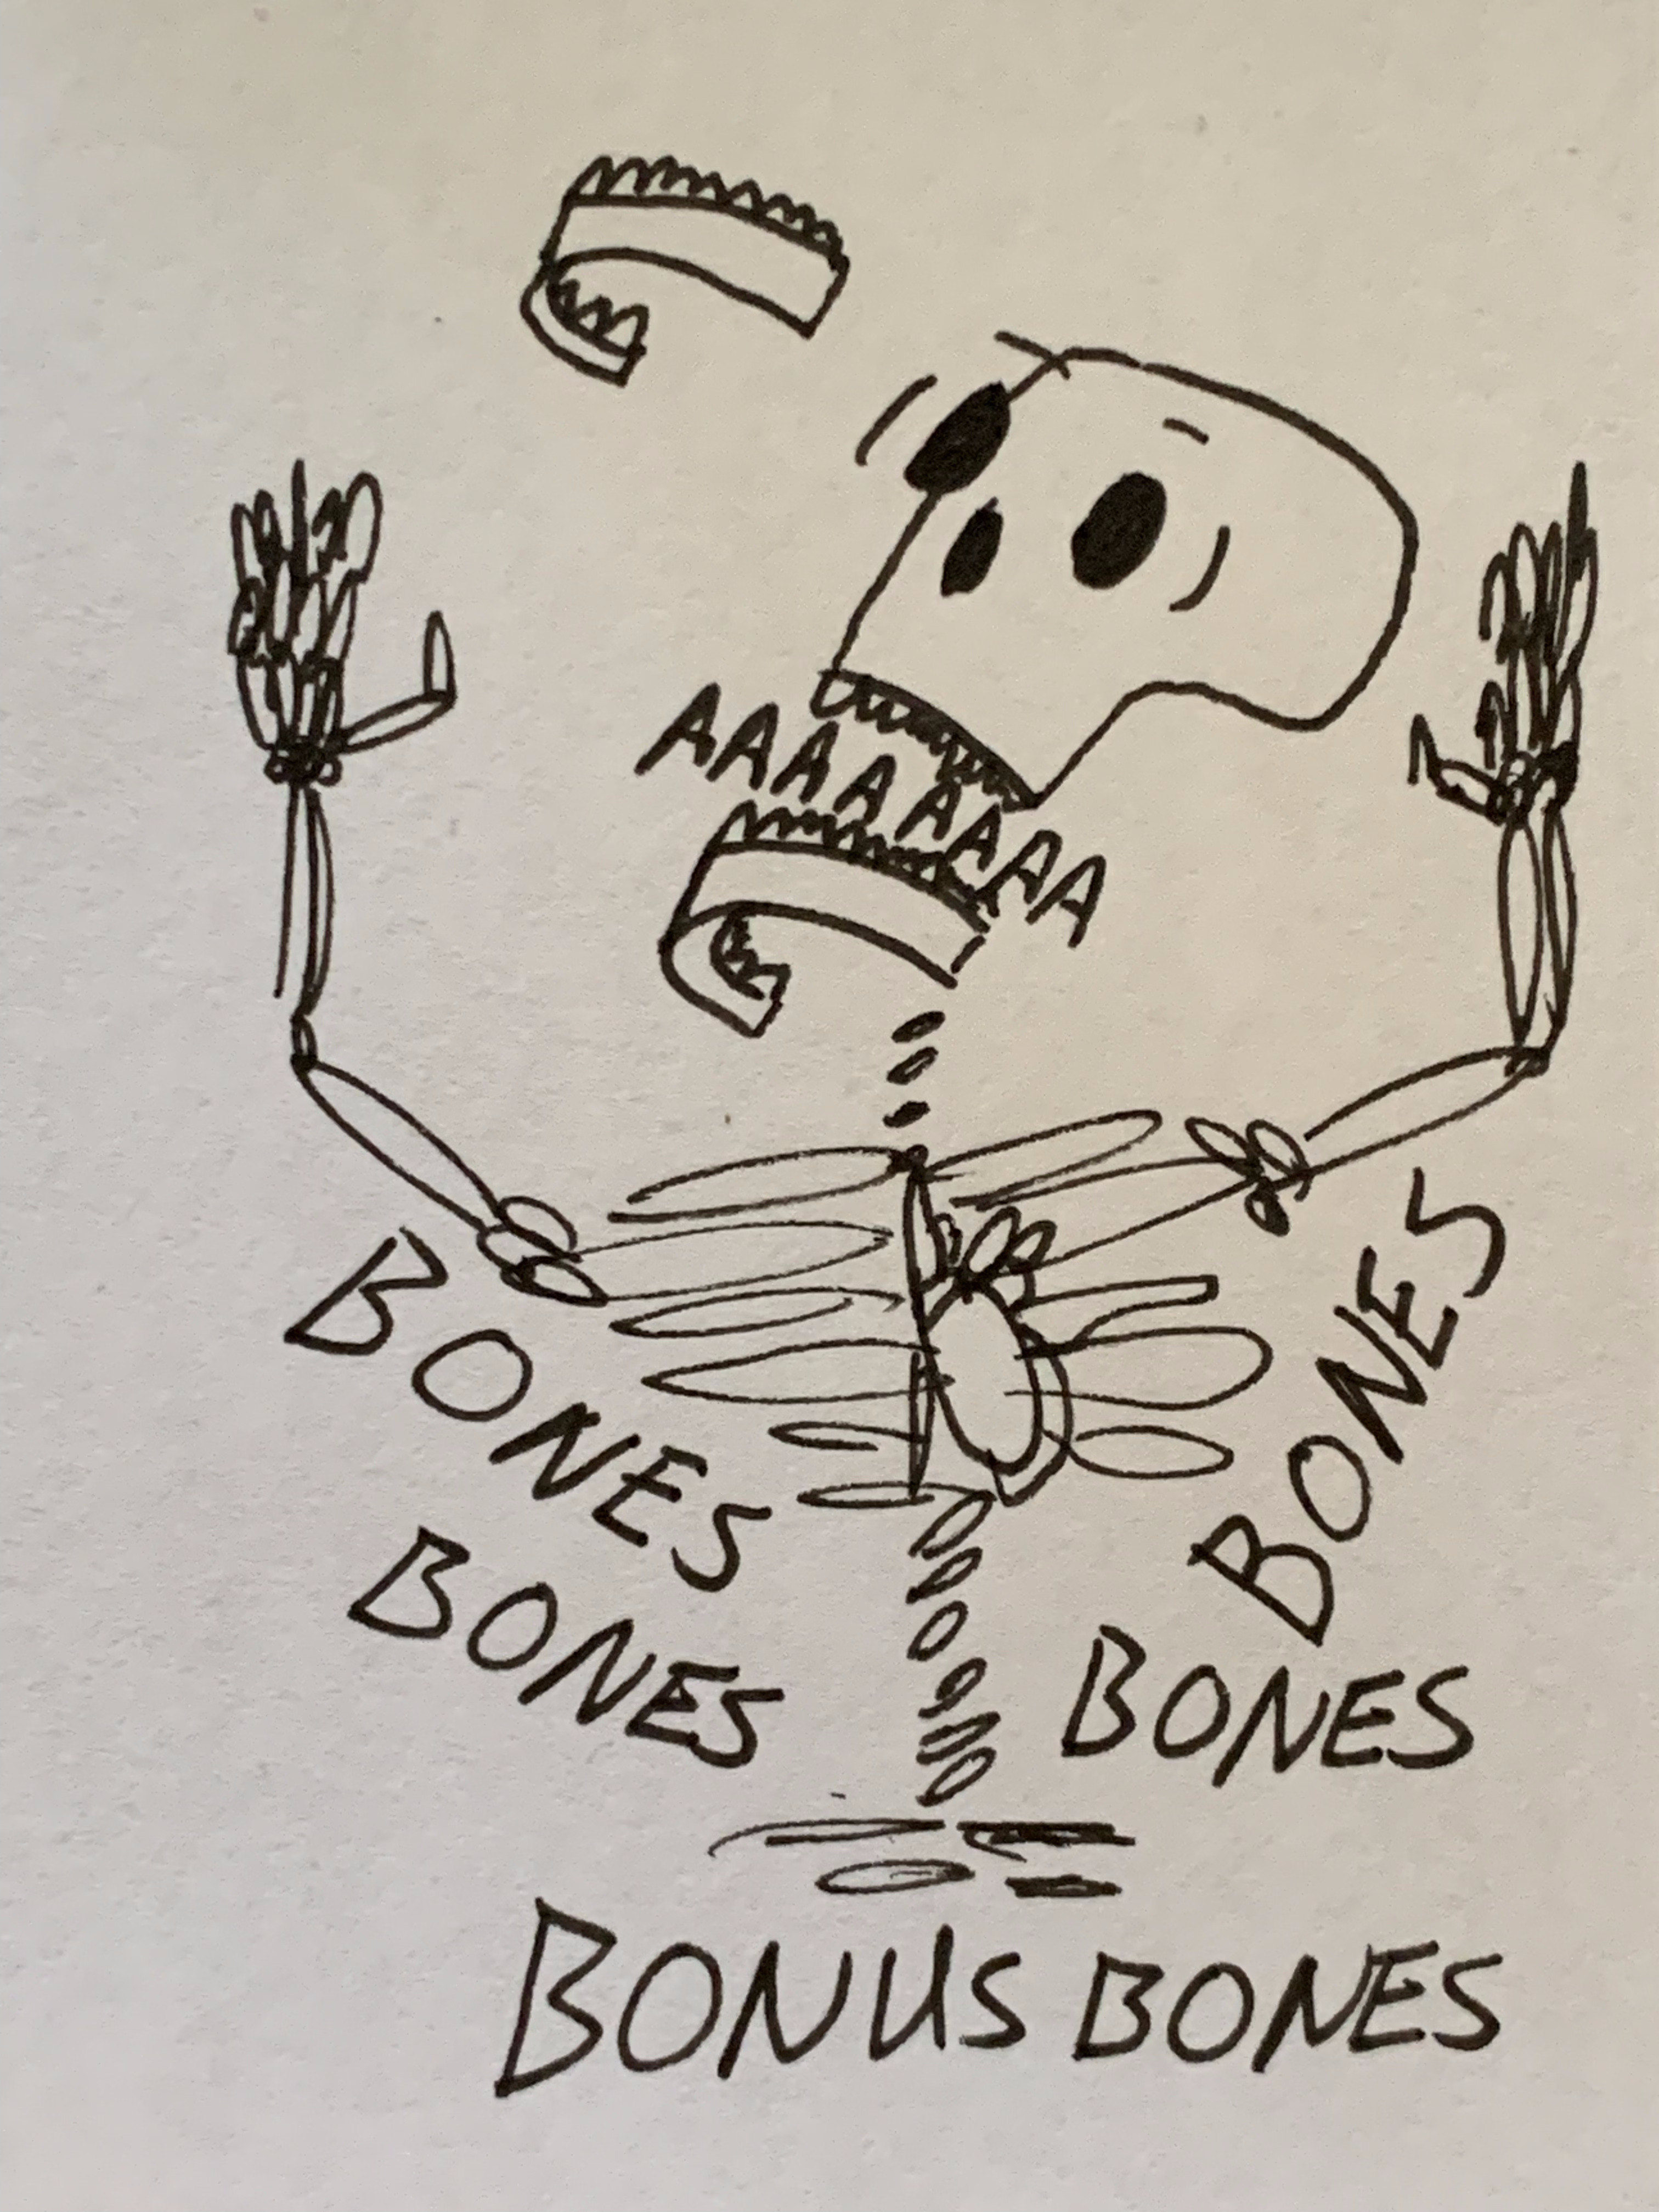 AAAAAAAA
BONES
BONES
BONES
BONES
BONUS BONES